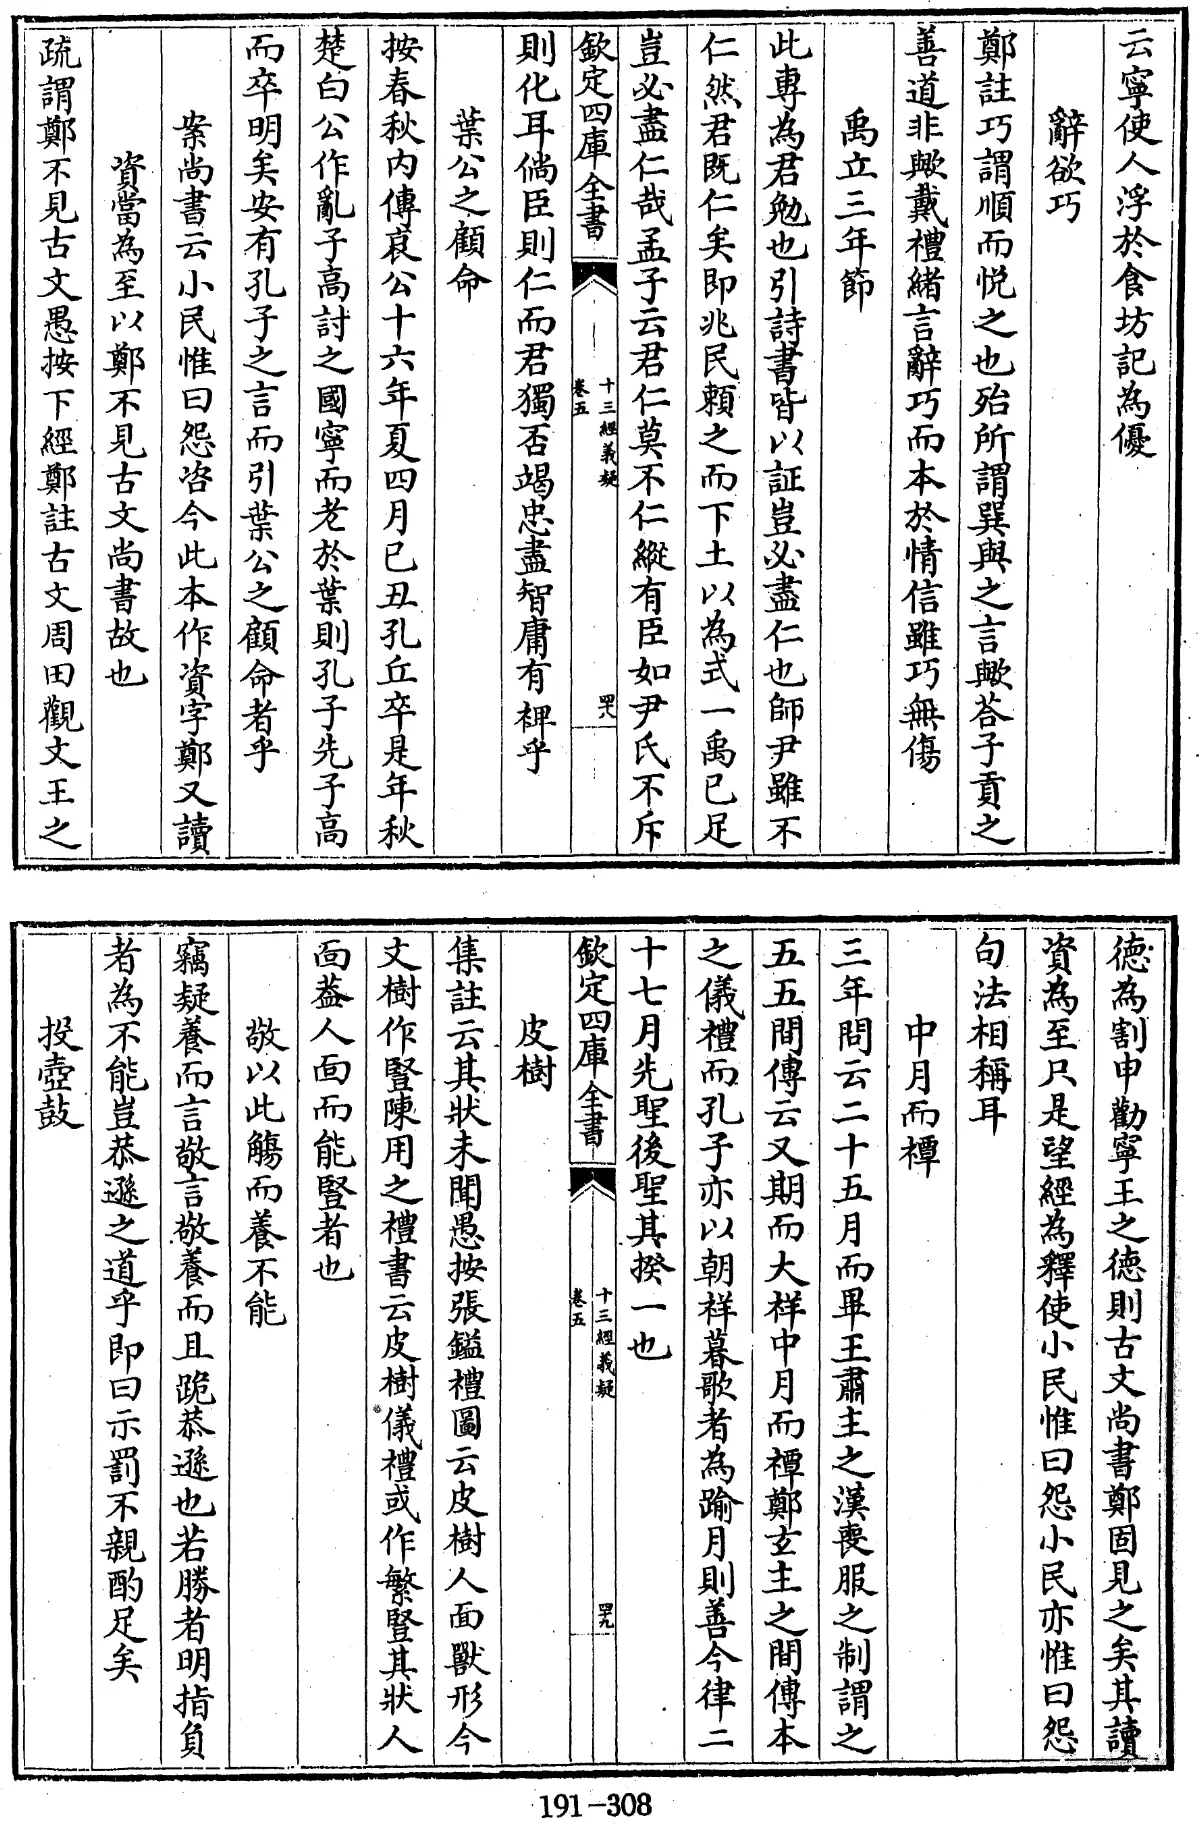 云寧使人浮於食坊記為優
辭欲巧
鄭註巧謂順而悅之也殆所謂巽與之言歟荅子貢之
善道非歟戴禮緒言辭巧而本於情信雖巧無傷
禹立三年節
此專為君勉也引詩書皆以証豈必盡仁也師尹雖不
仁然君既仁矣即兆民賴之而下土以為式一禹已足
豈必盡仁哉孟子云君仁莫不仁縱有臣如尹氏不斥
欽定四庫全書
十三經義疑
卷五
四八
則化耳倘臣則仁而君獨否竭忠盡智庸有裨乎
葉公之顧命
按春秋內傳哀公十六年夏四月己丑孔丘卒是年秋
楚白公作亂子高討之國寧而老於葉則孔子先子高
而卒明矣安有孔子之言而引葉公之顧命者乎
案尚書云小民惟曰怨咨今此本作資字鄭又讀
資當為至以鄭不見古文尚書故也
疏謂鄭不見古文愚按下經鄭註古文周田觀文王之
德為割申勸寧王之德則古文尚書鄭固見之矣其讀
資為至只是望經為釋使小民惟曰怨小民亦惟曰怨
句法相稱耳
中月而禫
三年問云二十五月而畢王肅主之漢喪服之制謂之
五五間傳云又期而大祥中月而禫鄭玄主之間傳本
之儀禮而孔子亦以朝祥暮歌者為踰月則善今律二
十七月先聖後聖其揆一也
欽定四庫全書
十三經義疑
卷五
四九
皮樹
集註云其狀未聞愚按張鎰禮圖云皮樹人面獸形今
文樹作豎陳用之禮書云皮樹儀禮或作繁豎其狀人
面葢人面而能豎者也
敬以此觴而養不能
竊疑養而言敬言敬養而且跪恭遜也若勝者明指負
者為不能豈恭遜之道乎即曰示罰不親酌足矣
投壺鼓
191-308